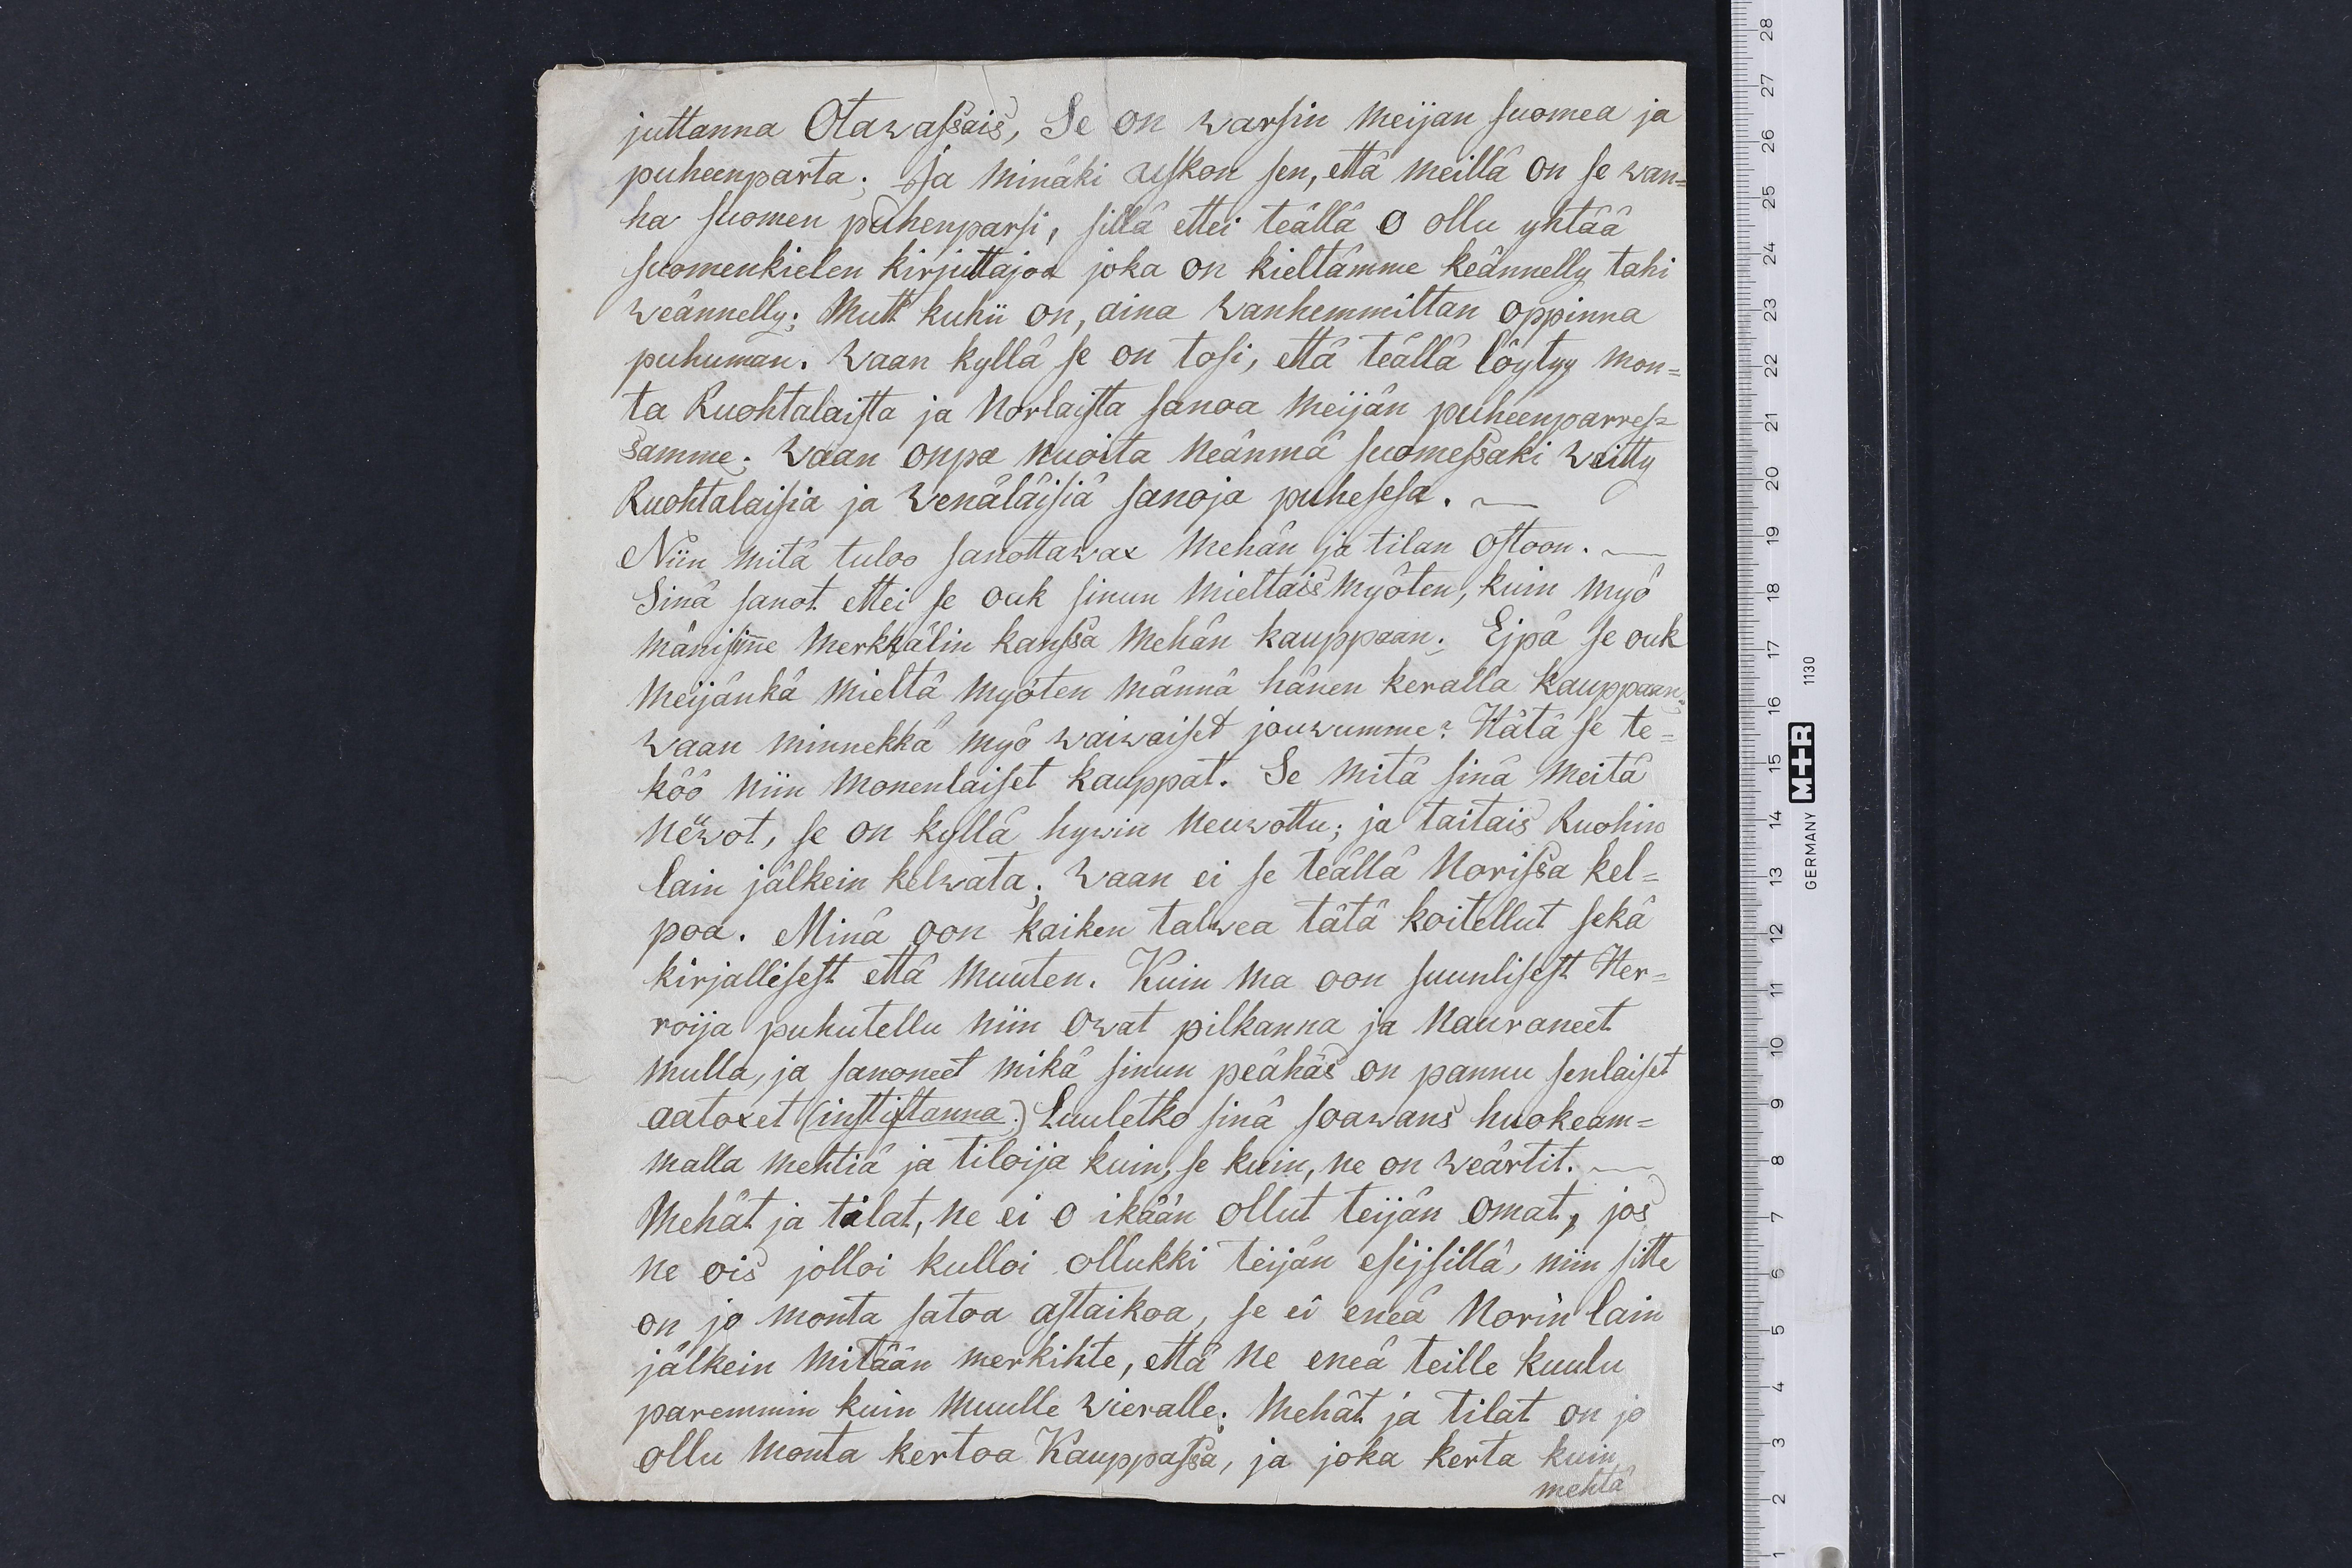 juttanna Otawassais, Se on warsin meijan suomea ja
puheenparta; Ja minäki uskon sen, että meillä on se wan=
ha suomen puhenparsi, sillä ettei teällä o ollu yhtää
suomenkielen kirjuttajoa joka on kieltämme keännelly tahi
weännelly; Mutt kuhii on, aina wanhemmiltan oppinna
puhuman. Waan kyllä se on tosi, että teällä löytyy mon=
ta Ruohtalaista ja Norlaista sanoa meijän puheenparres=
samme; Waan onpa nuoita neänmä suomessaki weitty
Ruohtalaisia ja Wenäläisiä sanoja puhessa. ~
Niin mitä tuloo sanottawax Mehän ja tilan ostoon. ~
Sinä sanot ettei se ouk sinun mieltais myöten, kuin myö
mänisim̅e Merkkälin kanssa Mehän kauppaan; Ejpä se ouk
meijänkä mieltä myöten männä hänen keralla kauppaan;
Waan minnekkä myö waiwaiset jouwumme? Hätä se te=
köö niin monenlaiset kauppat. Se mitä sinä meitä
newot, se on kyllä hywin neuwottu; ja taitais Ruohin
lain jälkein kelwata; Waan ei se teällä Norissa kel=
poa. Minä oon kaiken talwea tätä koitellut sekä
kirjallisest että muuten. Kuin ma oon suunlisest Her=
roija puhutellu niin owat pilkanna ja nauraneet
mulla, ja sanoneet mikä sinun peähäs on pannu senlaiset
aatoxet (instistanna;) Luuletko sinä soawans huokeam=
malla mehtiä ja tiloija kuin, se kuin, ne on weärtit. ~
Mehät ja tilat, ne ei o ikään ollut teijän omat, jos
ne ois jolloi kulloi ollukki teijän esijsillä, niin sitte
on jo monta satoa astaikoa, se ei eneä Norin lain
jälkein mitään merkihte, että ne eneä teille kuulu
paremmin kuin muulle wieralle; Mehät ja tilat on jo
ollu monta kertoa Kauppassa, ja joka kerta kuin
mehtä
28
27
26
25
24
23
22
21
20
19
18
17
16
15
14
13
12
11
10
9
8
7
6
5
4
3
2
1
GERMANY M+R 1130